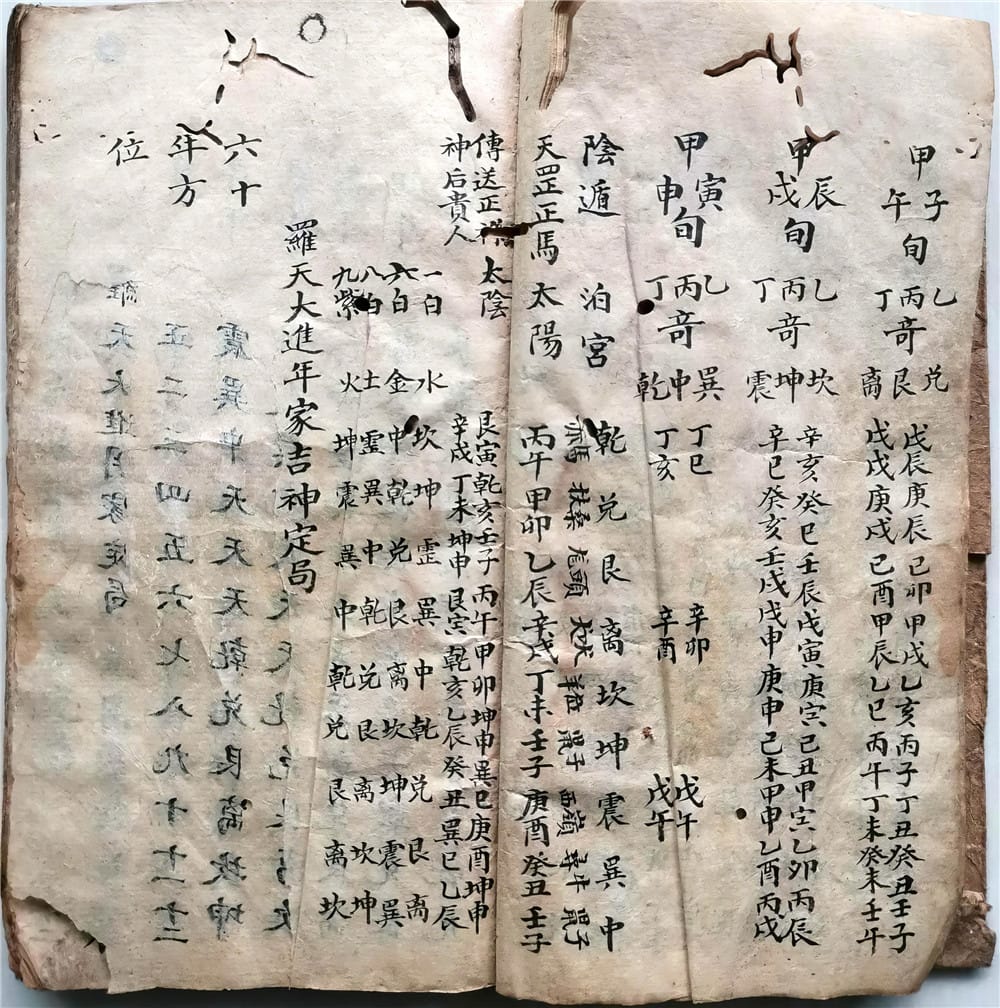 甲子午旬 乙丙丁奇 兑艮离
戊辰庚辰己卯甲戌乙亥丙子丁丑癸丑壬子
戊戌庚戌己酉甲辰乙巳丙午丁未癸未壬午
甲辰戌旬 乙丙丁奇 坎坤震
辛亥癸巳壬辰戊寅庚寅己丑甲寅乙卯丙辰
辛巳癸亥壬戌戊申庚申己未甲申乙酉丙戌
甲寅申旬 乙丙丁奇 巽中乾
丁巳 辛卯 戊午
丁亥 辛酉 戊午
陰遁 泊宮 乾兑艮离坎坤震巽中
扶桑 鼠子 西嶺 尋牛 鼠子
天罡正馬太陽 丙午甲卯乙辰辛戌丁未壬子庚酉癸丑壬子
傳送正禄 太陰 艮寅乾亥壬子丙午甲卯坤申巽巳庚酉坤申
神后貴人 辛戌丁未坤申艮寅乾亥乙辰癸丑巽巳乙辰
一白 水 坎坤震巽中乾兑艮离
六白 金 中乾兑艮离坎坤震巽
八白 土 震巽中乾兑艮离坎坤
九紫 火 坤震巽中乾兑艮离坎
羅天大進年家吉神定局
六十
年方
位